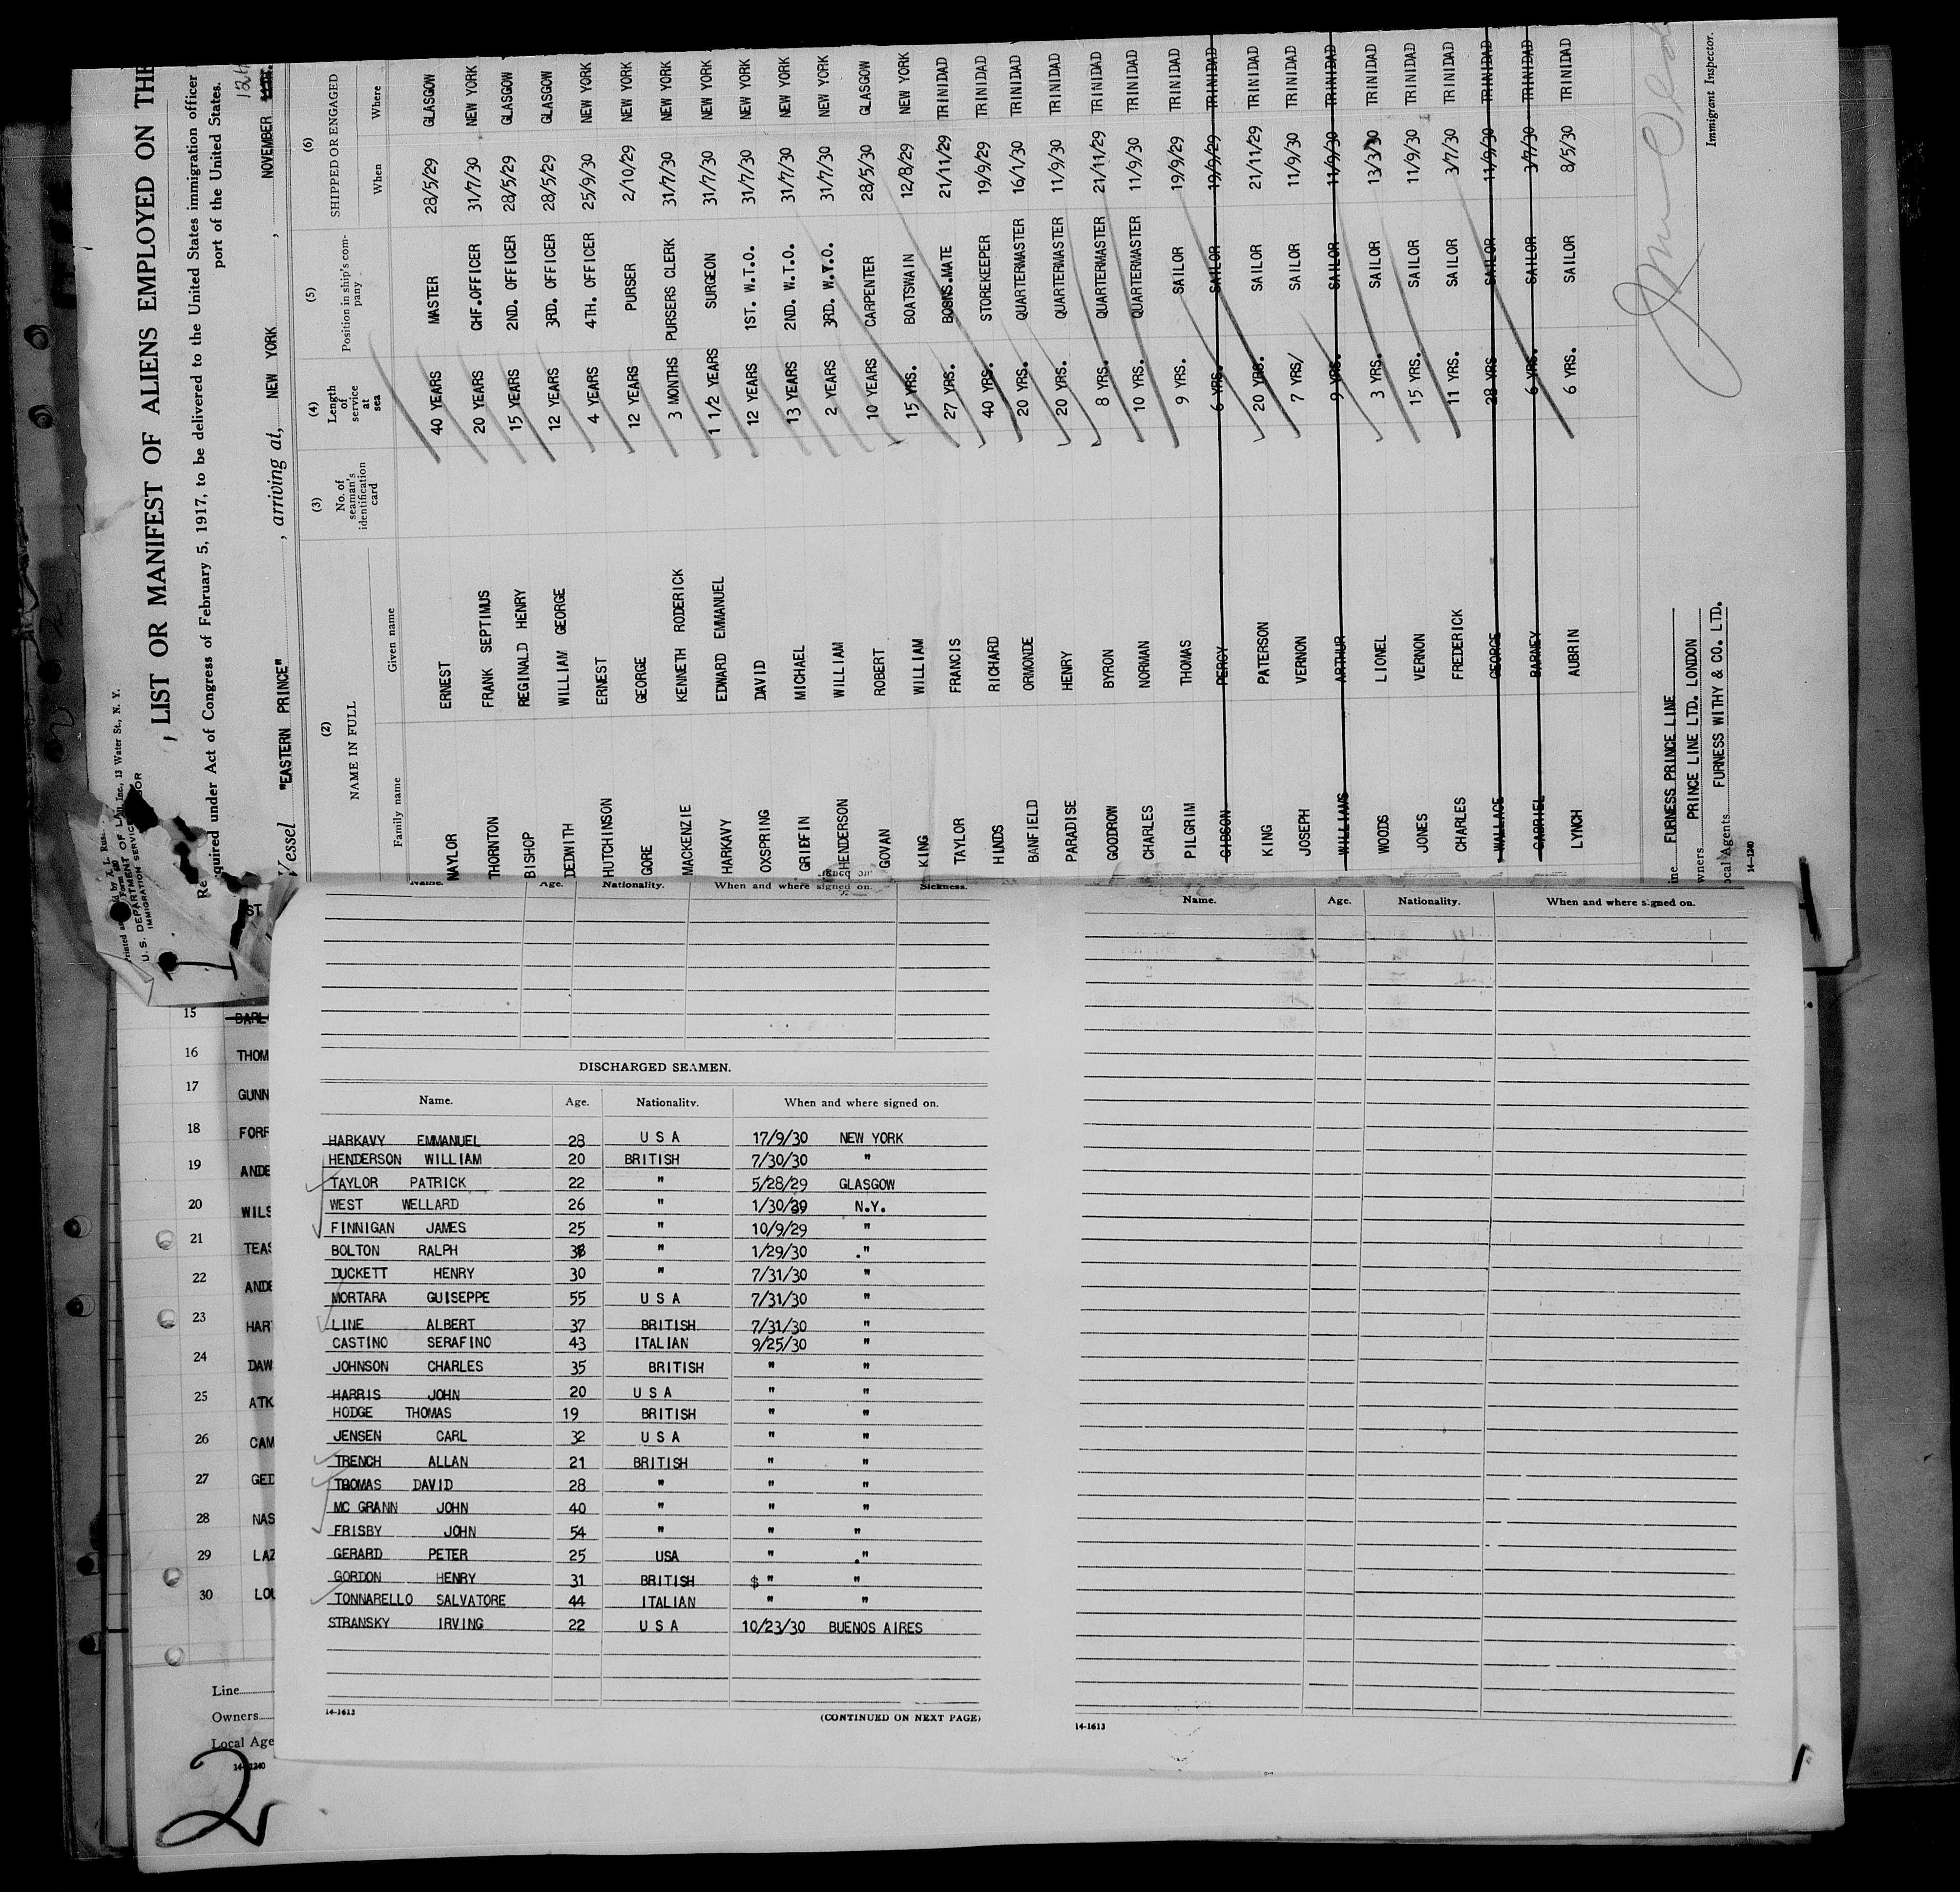 Printed
13 Water St., N. Y.
U. S. DEPARTMENT OF
IMMIGRATION SERVICE
LIST OR MANIFEST OF ALIENS EMPLOYED ON THE
Required under Act of Congress of February 5, 1917, to be delivered to the United States immigration officer
port of the United States.
Vessel "EASTERN PRINCE" , arriving at, NEW YORK , NOVEMBER 12th
(2) (3) (4) (5) (6)
NAME IN FULL No. of seaman's identification card Length of service at sea Position in ship's company SHIPPED OR ENGAGED
Family name Given name When Where
NAYLOR ERNEST 40 YEARS MASTER 28/5/29 GLASGOW
THORNTON FRANK SEPTIMUS 20 YEARS CHF.OFFICER 31/7/30 NEW YORK
BISHOP REGINALD HENRY 15 YEARS 2ND. OFFICER 28/5/29 GLASGOW
DEDWITH WILLIAM GEORGE 12 YEARS 3RD. OFFICER 28/5/29 GLASGOW
HUTCHINSON ERNEST 4 YEARS 4TH. OFFICER 25/9/30 NEW YORK
GORE GEORGE 12 YEARS PURSER 2/10/29 NEW YORK
MACKENZIE KENNETH RODERICK 3 MONTHS PURSERS CLERK 31/7/30 NEW YORK
HARKAVY EDWARD EMMANUEL 1 1/2 YEARS SURGEON 31/7/30 NEW YORK
OXSPRING DAVID 12 YEARS 1ST. W.T.O. 31/7/30 NEW YORK
GRIFFIN MICHAEL 13 YEARS 2ND. W.T.O. 31/7/30 NEW YORK
HENDERSON WILLIAM 2 YEARS 3RD. W.T.O. 31/7/30 NEW YORK
GOVAN ROBERT 10 YEARS CARPENTER 28/5/30 GLASGOW
KING WILLIAM 15 YRS. BOATSWAIN 12/8/29 NEW YORK
TAYLOR FRANCIS 27 YRS. BOSNS.MATE 21/11/29 TRINIDAD
HINDS RICHARD 40 YRS. STOREKEEPER 19/9/29 TRINIDAD
BANFIELD ORMONDE 20 YRS. QUARTERMASTER 16/1/30 TRINIDAD
PARADISE HENRY 20 YRS. QUARTERMASTER 11/9/30 TRINIDAD
GOODROW BYRON 8 YRS. QUARTERMASTER 21/11/29 TRINIDAD
CHARLES NORMAN 10 YRS. QUARTERMASTER 11/9/30 TRINIDAD
PILGRIM THOMAS 9 YRS. SAILOR 19/9/29 TRINIDAD
GIBSON PERCY 6 YRS. SAILOR 19/9/29 TRINIDAD
KING PATERSON 20 YRS. SAILOR 21/11/29 TRINIDAD
JOSEPH VERNON 7 YRS/ SAILOR 11/9/30 TRINIDAD
WILLIAMS ARTHUR 9 YRS. SAILOR 11/9/30 TRINIDAD
WOODS LIONEL 3 YRS. SAILOR 13/3/30 TRINIDAD
JONES VERNON 15 YRS. SAILOR 11/9/30 TRINIDAD
CHARLES FREDERICK 11 YRS. SAILOR 3/7/30 TRINIDAD
WALLACE GEORGE 28 YRS SAILOR 11/9/30 TRINIDAD
GABRIEL BARNEY 6 YRS. SAILOR 3/7/30 TRINIDAD
LYNCH AUBRIN 6 YRS. SAILOR 8/5/30 TRINIDAD
Line FURNESS PRINCE LINE
Owners PRINCE LINE LTD. LONDON
Local Agents FURNESS WITHY & CO. LTD.
Immigrant Inspector.
14-1240
Name. Age. Nationality. When and where signed on. Sickness.
DISCHARGED SEAMEN.
Name. Age. Nationality. When and where signed on.
HARKAVY EMMANUEL 28 U S A 17/9/30 NEW YORK
HENDERSON WILLIAM 20 BRITISH 7/30/30 "
TAYLOR PATRICK 22 " 5/28/29 GLASGOW
WEST WELLARD 26 " 1/30/29 N.Y.
FINNIGAN JAMES 25 " 10/9/29 "
BOLTON RALPH " 1/29/30 ."
DUCKETT HENRY 30 " 7/31/30 "
MORTARA GUISEPPE 55 U S A 7/31/30 "
LINE ALBERT 37 BRITISH 7/31/30 "
CASTINO SERAFINO 43 ITALIAN 9/25/30 "
JOHNSON CHARLES 35 BRITISH " "
HARRIS JOHN 20 U S A " "
HODGE THOMAS 19 BRITISH " "
JENSEN CARL 32 U S A " "
TRENCH ALLAN 21 BRITISH " "
THOMAS DAVID 28 " " "
MC GRANN JOHN 40 " " "
FRISBY JOHN 54 " " "
GERARD PETER 25 USA " ."
GORDON HENRY 31 BRITISH $ " "
TONNARELLO SALVATORE 44 ITALIAN " "
STRANSKY IRVING 22 U S A 10/23/30 BUENOS AIRES
14-1613 (CONTINUED ON NEXT PAGE)
Name. Age. Nationality. When and where signed on.
14-1613
15 BARL
16 THOM
17 GUNN
18 FORR
19 ANDE
20 WILS
21 TEAS
22 ANDE
23 HART
24 DAW
25 ATK
26 CAM
27 GED
28 NAS
29 LAZ
30 LOU
Line
Owners
Local Age
14-1240
2